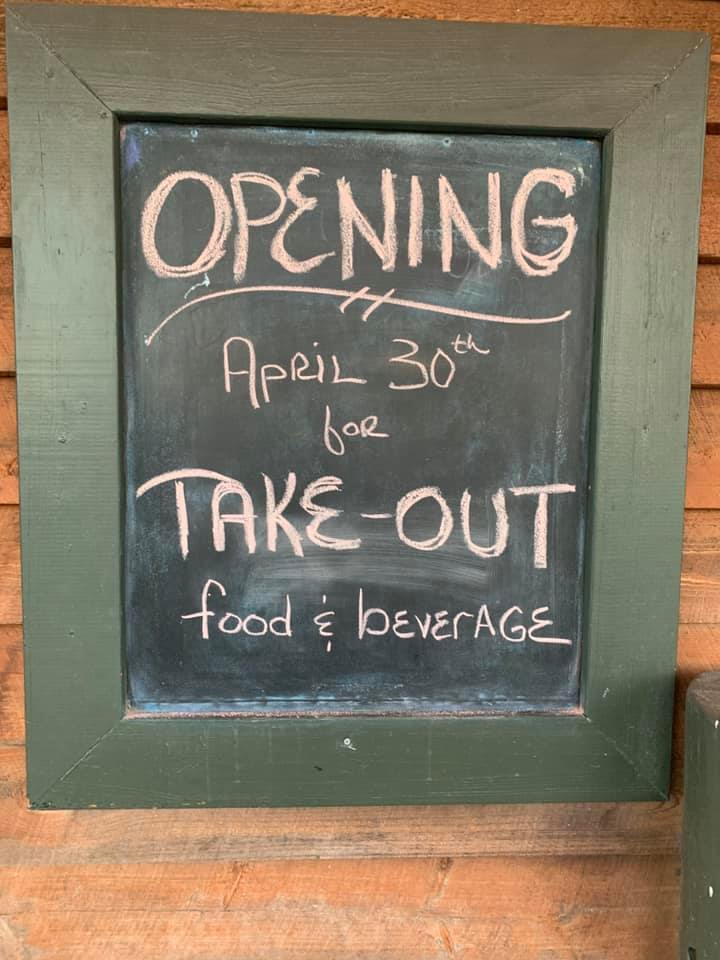 OPENING
April 30th
for
TAKE-OUT
food & beverAGE